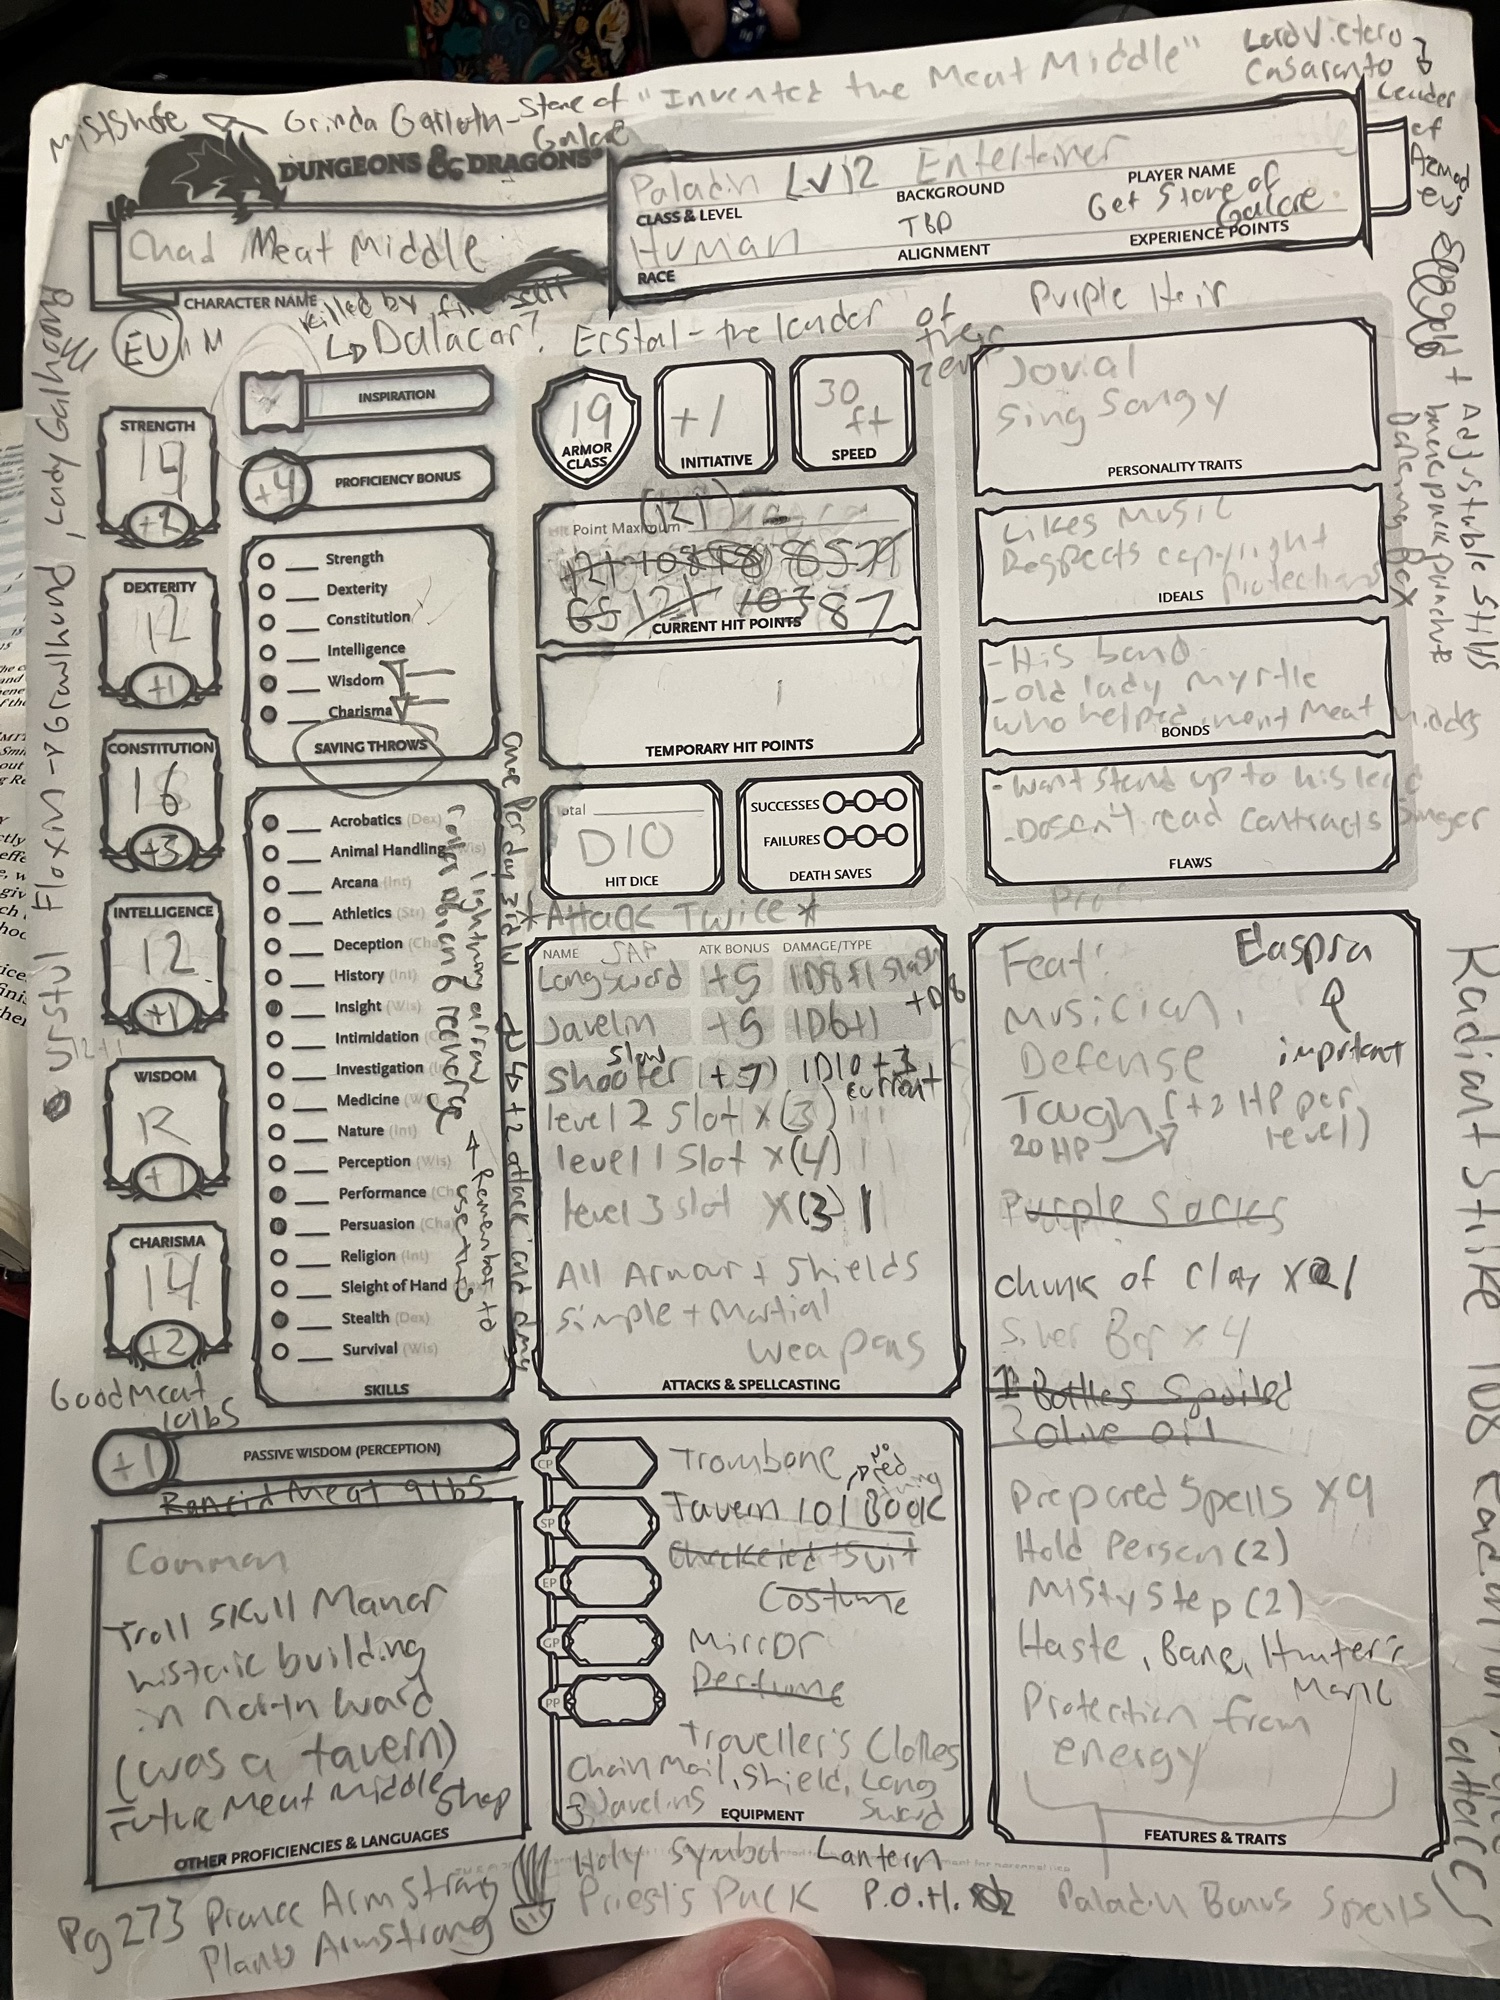 "Invented the Meat Middle"
Lord Victero
Casaranto
Leader
of
MistShore
Grinda Garloth - Stone of
Galore
DUNGEONS & DRAGONS
Chad Meat Middle
CHARACTER NAME
Paladin LV12 Entertainer
CLASS & LEVEL
BACKGROUND
PLAYER NAME
Human
TBD
Get Stone of
Galore
RACE
ALIGNMENT
EXPERIENCE POINTS
killed by fire
Dalacar?
Erstal - the leader of
their
Purple Heir
INSPIRATION
+4
PROFICIENCY BONUS
STRENGTH
+2
DEXTERITY
12
+1
CONSTITUTION
16
+3
INTELLIGENCE
12
+1
WISDOM
+1
CHARISMA
14
+2
Strength
Dexterity
Constitution
Intelligence
Wisdom
Charisma
SAVING THROWS
Acrobatics (Dex)
Animal Handling (Wis)
Arcana (Int)
Athletics (Str)
Deception (Cha
History (Int)
Insight (Wis)
Intimidation (
Investigation (
Medicine (W
Nature (Int)
Perception (Wis)
Performance (Ch
Persuasion (Cha)
Religion (Int)
Sleight of Hand
Stealth (Dex)
Survival (Wis)
SKILLS
once per day
lightning
recharge
Remember to
use this
+2 attack
Good Meat
10lbs
+1
PASSIVE WISDOM (PERCEPTION)
Rancid Meat 9lbs
Common
Troll Skull Manor
historic building
in North Ward
(was a tavern)
Future Meat Middle Shop
OTHER PROFICIENCIES & LANGUAGES
19
ARMOR
CLASS
+1
INITIATIVE
30
ft
SPEED
(121)
Hit Point Maximum
65 121 103 87
CURRENT HIT POINTS
TEMPORARY HIT POINTS
Total
D10
HIT DICE
SUCCESSES
FAILURES
DEATH SAVES
*Attack Twice*
NAME
SAP
ATK BONUS
DAMAGE/TYPE
Longsword +5 1D8+1 slash
+D8
Javelin +5 1D6+1
slow
Shooter (+7) 1D10+3
current
level 2 slot x(3)
level 1 slot x(4)
level 3 slot x(3)
All Armour + Shields
Simple + Martial
weapons
ATTACKS & SPELLCASTING
CP
SP
EP
GP
PP
Trombone
Tavern 101 Book
Checkered Suit
Costume
Mirror
Perfume
Traveller's Clothes
Chain Mail, Shield, Long
3 Javelins Sword
EQUIPMENT
Holy Symbol Lantern
Priest's Pack P.O.H.
Jovial
Sing Songy
PERSONALITY TRAITS
Likes Music
Respects copyright
Protections
IDEALS
- His band
- Old lady Myrtle
who helped invent Meat Middles
BONDS
- Wont stand up to his lead
singer
- Doesn't read contracts
FLAWS
Feat:
Elaspra
important
Musician,
Defense
Tough (+2 HP per
level)
20HP
Purple Socks
chunk of Clay
Silver Bar x4
Bottles Spoiled
Olive Oil
Prepared Spells x9
Hold Person (2)
Misty Step (2)
Haste, Bane, Hunter's
Mark
Protection from
energy
FEATURES & TRAITS
Paladin Bonus Spells
Adjustable Stilts
backpack parachute
Urstul Floxin → Grawlhund, Lady Galhoong
Pg 273 Prance Armstrong
Plants Armstrong